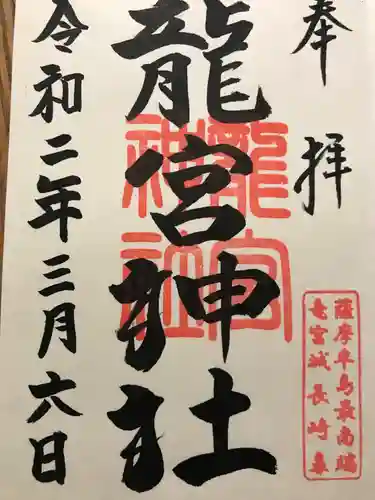 奉拝
龍宮神社
令和二年三月六日
龍宮
神社
薩摩半島最南端
竜宮城長崎鼻